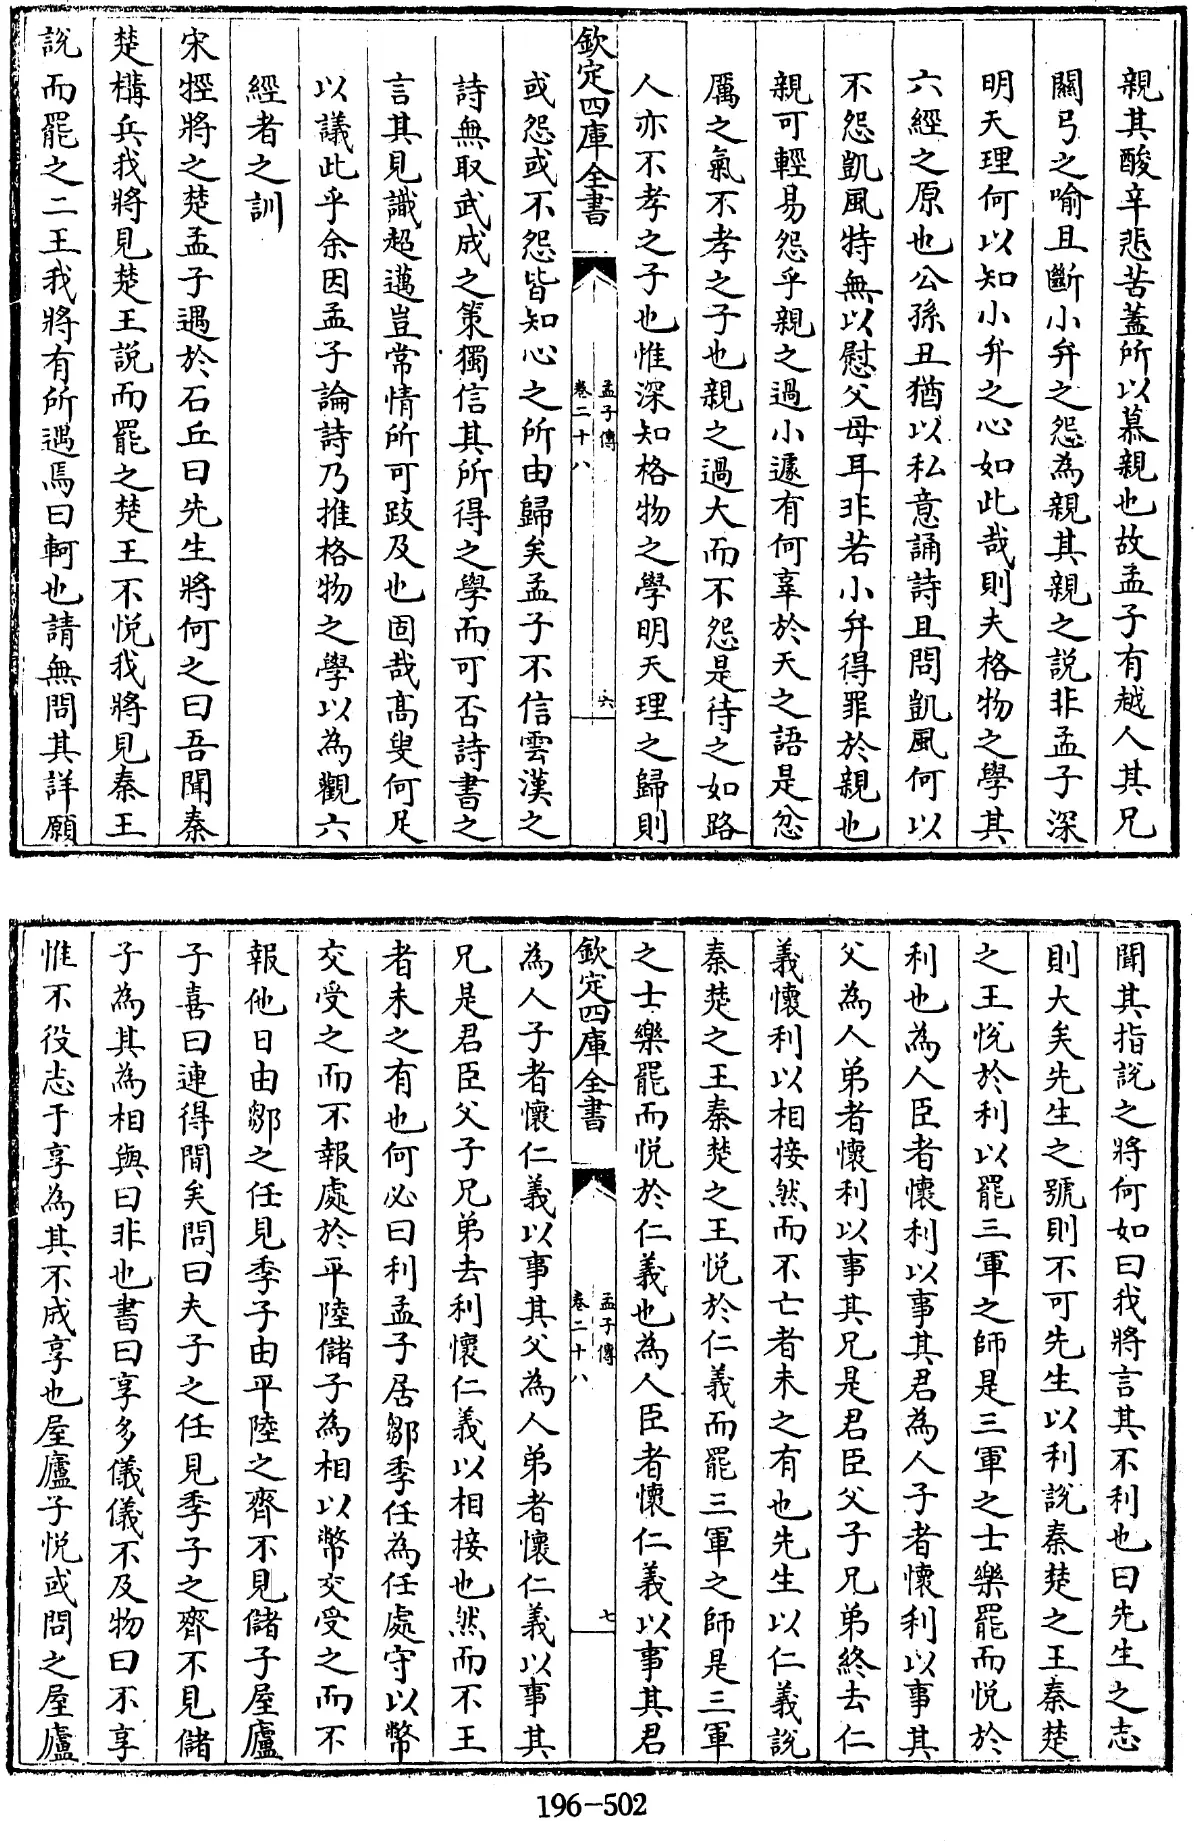 親其酸辛悲苦蓋所以慕親也故孟子有越人其兄
關弓之喻且斷小弁之怨為親其親之説非孟子深
明天理何以知小弁之心如此哉則夫格物之學其
六經之原也公孫丑猶以私意誦詩且問凱風何以
不怨凱風特無以慰父母耳非若小弁得罪於親也
親可輕易怨乎親之過小遽有何辜於天之語是忿
厲之氣不孝之子也親之過大而不怨是待之如路
人亦不孝之子也惟深知格物之學明天理之歸則
欽定四庫全書
孟子傳
卷二十八
六
或怨或不怨皆知心之所由歸矣孟子不信雲漢之
詩無取武成之策獨信其所得之學而可否詩書之
言其見識超邁豈常情所可跂及也固哉高叟何足
以議此乎余因孟子論詩乃推格物之學以為觀六
經者之訓
宋牼將之楚孟子遇於石丘曰先生將何之曰吾聞秦
楚構兵我將見楚王説而罷之楚王不悦我將見秦王
説而罷之二王我將有所遇焉曰軻也請無問其詳願
聞其指説之將何如曰我將言其不利也曰先生之志
則大矣先生之號則不可先生以利説秦楚之王秦楚
之王悦於利以罷三軍之師是三軍之士樂罷而悦於
利也為人臣者懷利以事其君為人子者懷利以事其
父為人弟者懷利以事其兄是君臣父子兄弟終去仁
義懷利以相接然而不亡者未之有也先生以仁義説
秦楚之王秦楚之王悦於仁義而罷三軍之師是三軍
之士樂罷而悦於仁義也為人臣者懷仁義以事其君
欽定四庫全書
孟子傳
卷二十八
七
為人子者懷仁義以事其父為人弟者懷仁義以事其
兄是君臣父子兄弟去利懷仁義以相接也然而不王
者未之有也何必曰利孟子居鄒季任為任處守以幣
交受之而不報處於平陸儲子為相以幣交受之而不
報他日由鄒之任見季子由平陸之齊不見儲子屋廬
子喜曰連得間矣問曰夫子之任見季子之齊不見儲
子為其為相與曰非也書曰享多儀儀不及物曰不享
惟不役志于享為其不成享也屋廬子悦或問之屋廬
196-502